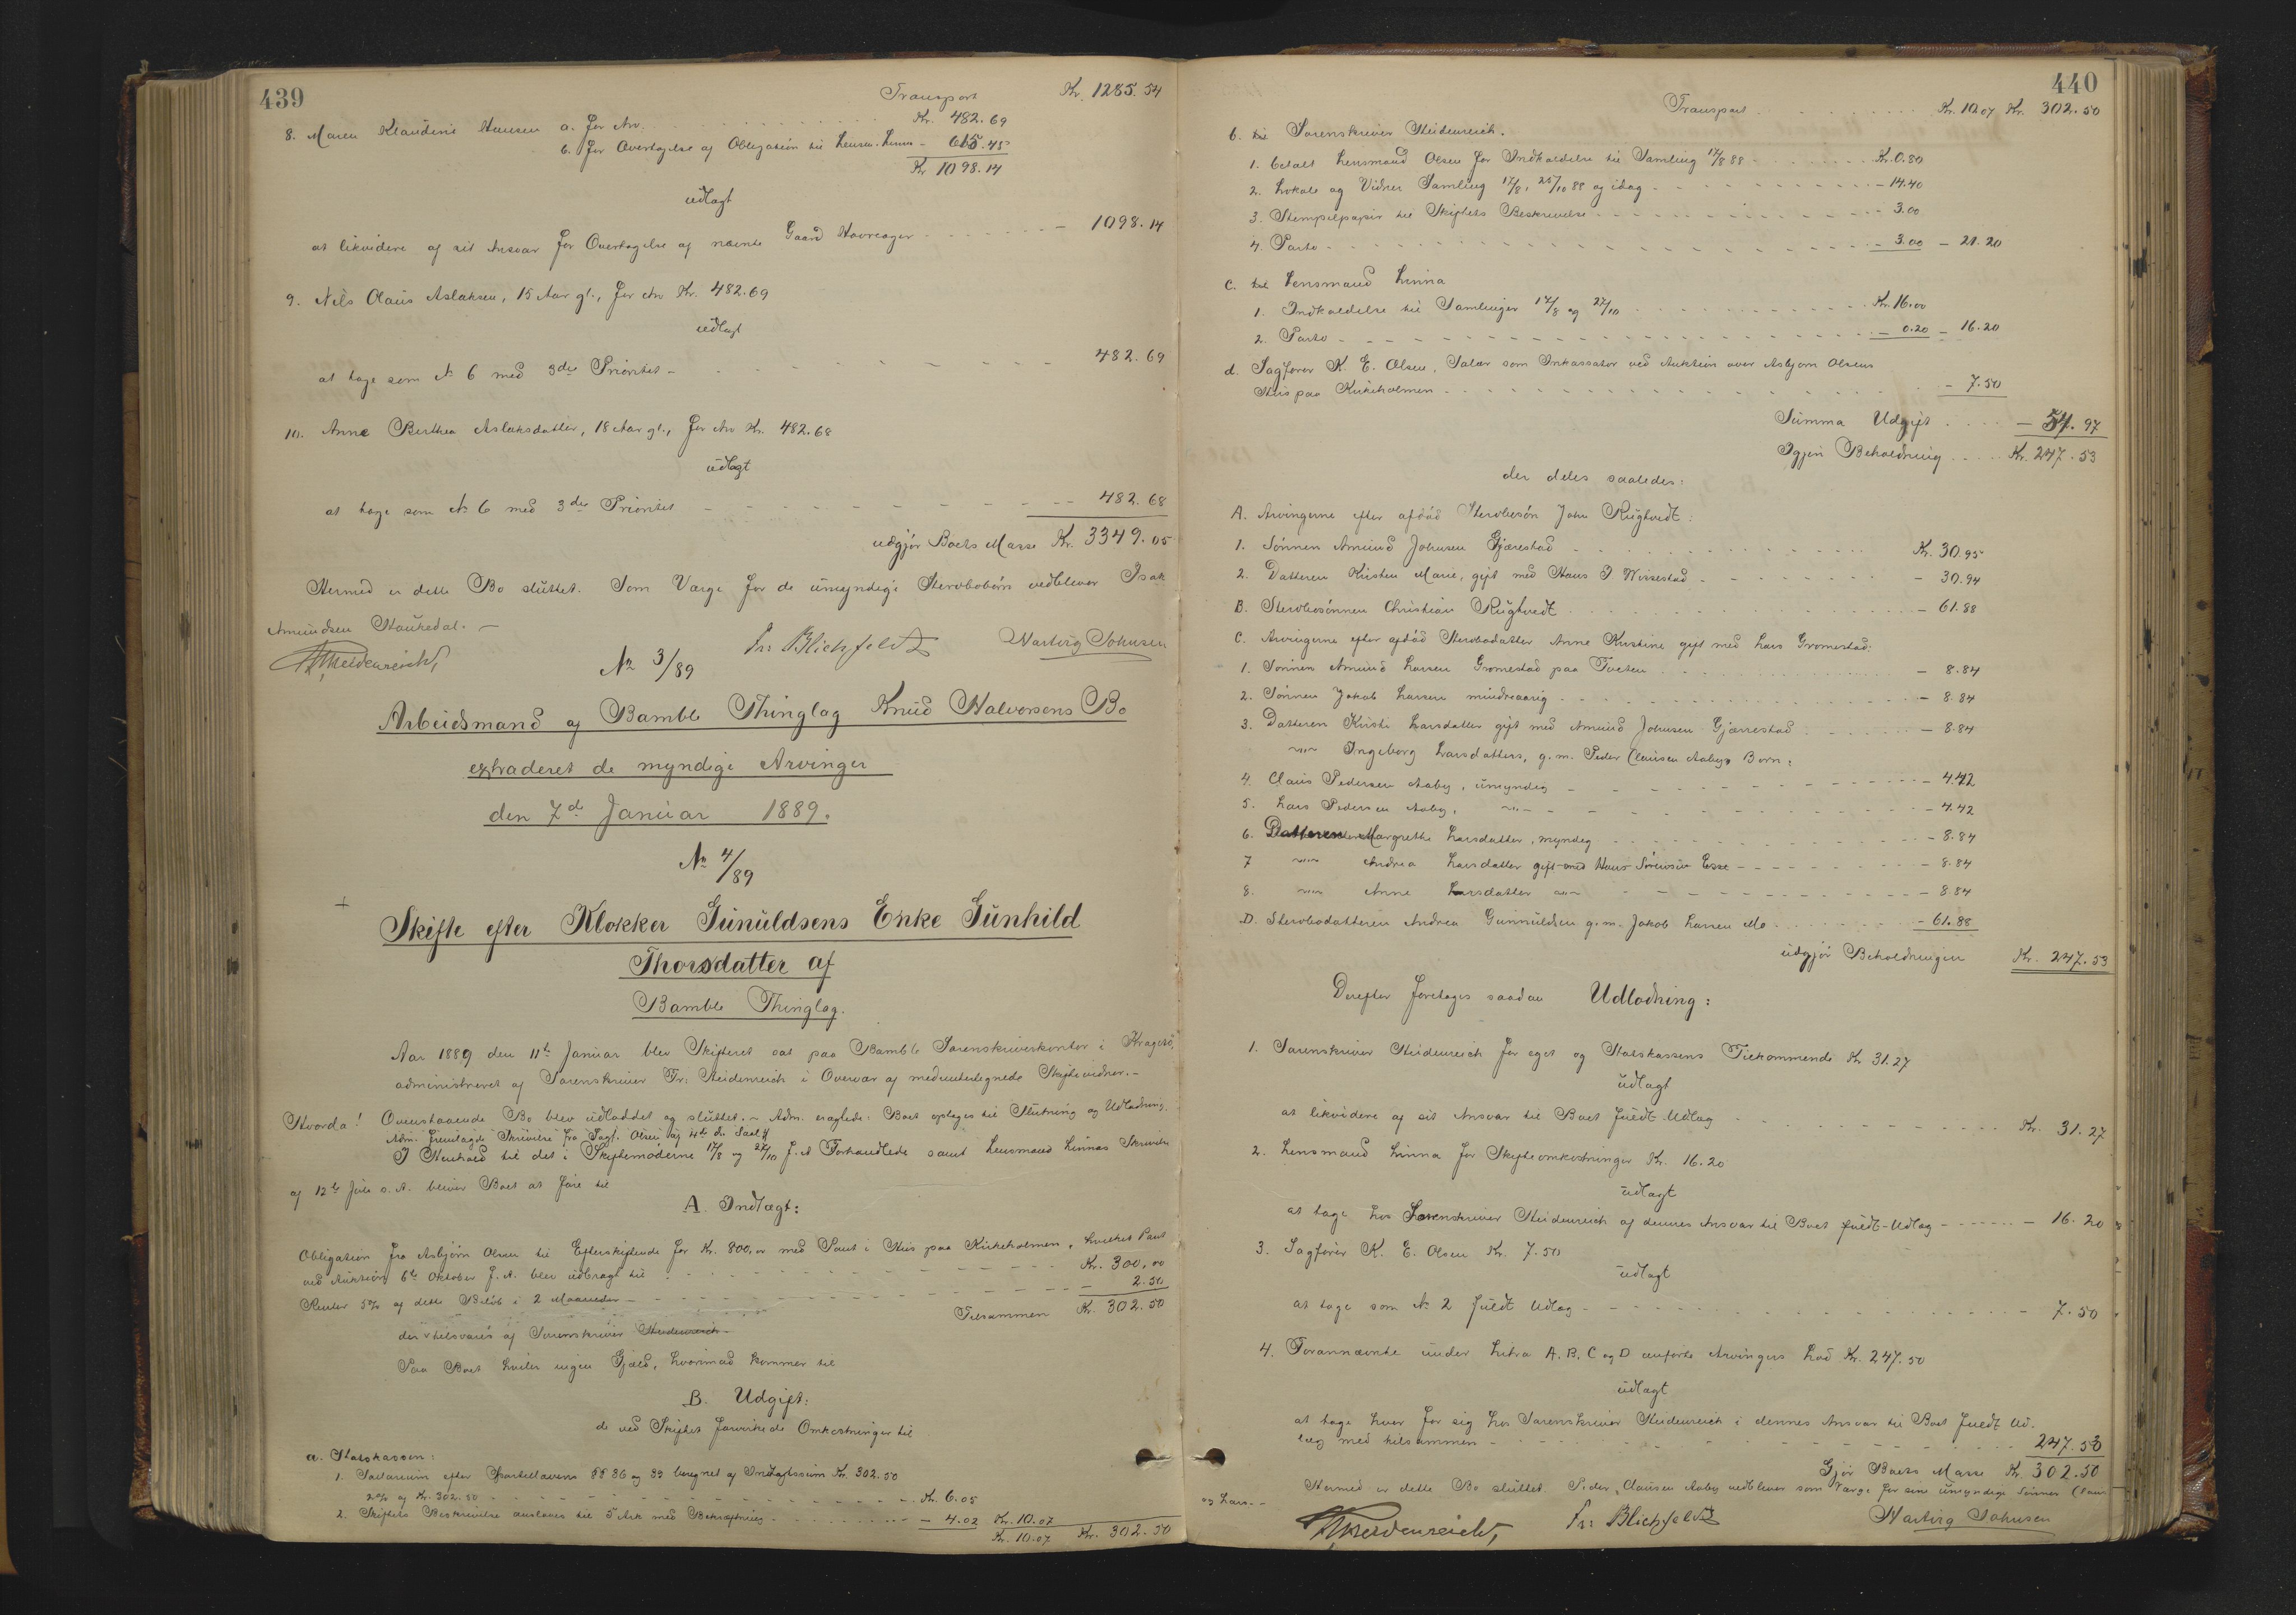 439
Transport Kr. 1285.54
8. Maren Klaudine Hansen a. for Arv Kr. 482.69
b. for Overtagelse af Obligation til Lensm. Linna - 615.45
Kr. 1098.14
udlagt
at likvidere af sit Ansvar for Overtagelse af nævnte Gaard Hovreager - 1098.14
9. Nils Olaus Aslaksen, 15 Aar gl., for Arv Kr. 482.69
udlagt
at tage som No 6 med 3die Prioritet - 482.69
10. Anne Berthea Aslaksdatter, 18 Aar gl., for Arv Kr. 482.68
udlagt
at tage som No 6 med 3die Prioritet - 482.68
udgjør Boets Masse Kr. 3349.05
Hermed er dette Bo sluttet. Som Værge for de umyndige Stervbobørn vedblever Isak
Amundsen Haukedal. -
Heidenreich, Fr: Blichfeldt Hartvig Johnsen
No 3/89
Arbeidsmand af Bamble Thinglag Knud Halvorsens Bo
extraderet de myndige Arvinger
den 7d Januar 1889.
No 4/89
+
Skifte efter Klokker Gunuldsens Enke Gunhild
Thorsdatter af
Bamble Thinglag.
Aar 1889 den 11te Januar blev Skifteret sat paa Bamble Sorenskriverkontor i Kragerø,
administreret af Sorenskriver Fr: Heidenreich i Overvær af medundertegnede Skiftevidner. -
Hvorda! Ovenstaaende Bo blev udloddet og sluttet. - Adm. eragtede: Boet optages til Slutning og Udlodning.
Adm. fremlagde Skrivelse fra Sagf. Olsen af 4de ds saal.
I Henhold til det i Skiftemøderne 17/8 og 27/10 f. A. Forhandlede samt Lensmand Linnas Skrivelse
af 12te Juli s. A. bliver Boet at føre til
A. Indtægt:
Obligation fra Asbjørn Olsen til Efterskiftende for Kr. 800,00 med Pant i Hus paa Kirkeholmen, hvilket Pant
ved Auktion 6te Oktober f. A. blev udbragt til Kr. 300,00
Renter 5% af dette Beløb i 2 Maaneder - 2.50
Tilsammen Kr. 302.50
der tilsvares af Sorenskriver Heidenreich -
Paa Boet hviler ingen Gjæld, hvorimod kommer til
B. Udgift:
de ved Skiftet forvirkede Omkostninger til
a. Statskassen:
1. Sallarium efter Sportellovens §§ 36 og 39 beregnet af Indtægtssum Kr. 302.50
2% af Kr. 302.50 Kr. 6.05
2. Skiftets Beskrivelse ansloves til 5 Ark med Bekræftning - 4.02 Kr. 10.07
Kr. 10.07 Kr. 302.50
440
Transport Kr. 10.07 Kr. 302.50
b. til Sorenskriver Heidenreich.
1. betalt Lensmand Olsen for Indkaldelse til Samling 17/8 88 Kr. 0.80
2. Lokale og Vidner Samling 17/8, 25/10 88 og idag - 14.40
3. Stempelpapir til Skiftets Beskrivelse - 3.00
4. Porto - 3.00 - 21.20
c. til Lensmand Linna
1. Indkaldelse til Samlinger 17/8 og 27/10 Kr. 16.00
2. Porto - 0.20 - 16.20
d. Sagfører K. E. Olsen, Salær som Inkassator ved Auktion over Asbjørn Olsens
Hus paa Kirkeholmen - 7.50
Summa Udgift - 54.97
Igjen Beholdning Kr. 247.53
der deles saaledes:
A. Arvingerne efter afdød Stervbosøn John Rughvedt:
1. Sønnen Amund Johnsen Gjærestad Kr. 30.95
2. Datteren Kirsten Marie, gift med Hans I Wissestad - 30.94
B. Stervbosønnen Christian Rughvedt - 61.88
C. Arvingerne efter afdød Stervbodatter Anne Kirstine gift med Lars Gromestad:
1. Sønnen Amund Larsen Gromestad paa Tveten - 8.84
2. Sønnen Jakob Larsen mindreaarig - 8.84
3. Datteren Kirsti Larsdatter gift med Amund Johnsen Gjærrestad - 8.84
-"- Ingeborg Larsdatters, g. m. Peder Clausen Aabys Børn:
4. Claus Pedersen Aaby, umyndig - 4.42
5. Lars Pedersen Aaby, -"- - 4.42
6. Datteren Margrethe Larsdatter, myndig - 8.84
7 -"- Andrea Larsdatter gift med Hans Sørensen Esse - 8.84
8. -"- Anne Larsdatter -"- - 8.84
D. Stervbodatteren Andrea Gunnuldsen g. m. Jakob Larsen Mo - 61.88
udgjør Beholdningen Kr. 247.53
Derefter foretoges saadan Udlodning:
1. Sorenskriver Heidenreich for eget og Statskassens Tilkommende Kr. 31.27
udlagt
at likvidere af sit Ansvar til Boet fuldt Udlæg Kr. 31.27
2. Lensmand Linna for Skifteomkostninger Kr. 16.20
udlagt
at tage hos Sorenskriver Heidenreich af dennes Ansvar til Boet fuldt Udlæg - 16.20
3. Sagfører K. E. Olsen Kr. 7.50
udlagt
at tage som No 2 fuldt Udlæg - 7.50
4. Forannævnte under Litra A, B, C og D anførte Arvinger hvad Kr. 247.50
udlagt
at tage hver for sig hos Sorenskriver Heidenreich i dennes Ansvar til Boet fuldt Ud-
læg med tilsammen - 247.53
Gjør Boets Masse Kr. 302.50
Hermed er dette Bo sluttet. Peder Clausen Aaby vedblever som Værge for sine umyndige Sønner Claus
og Lars. -
Heidenreich, Fr: Blichfeldt Hartvig Johnsen